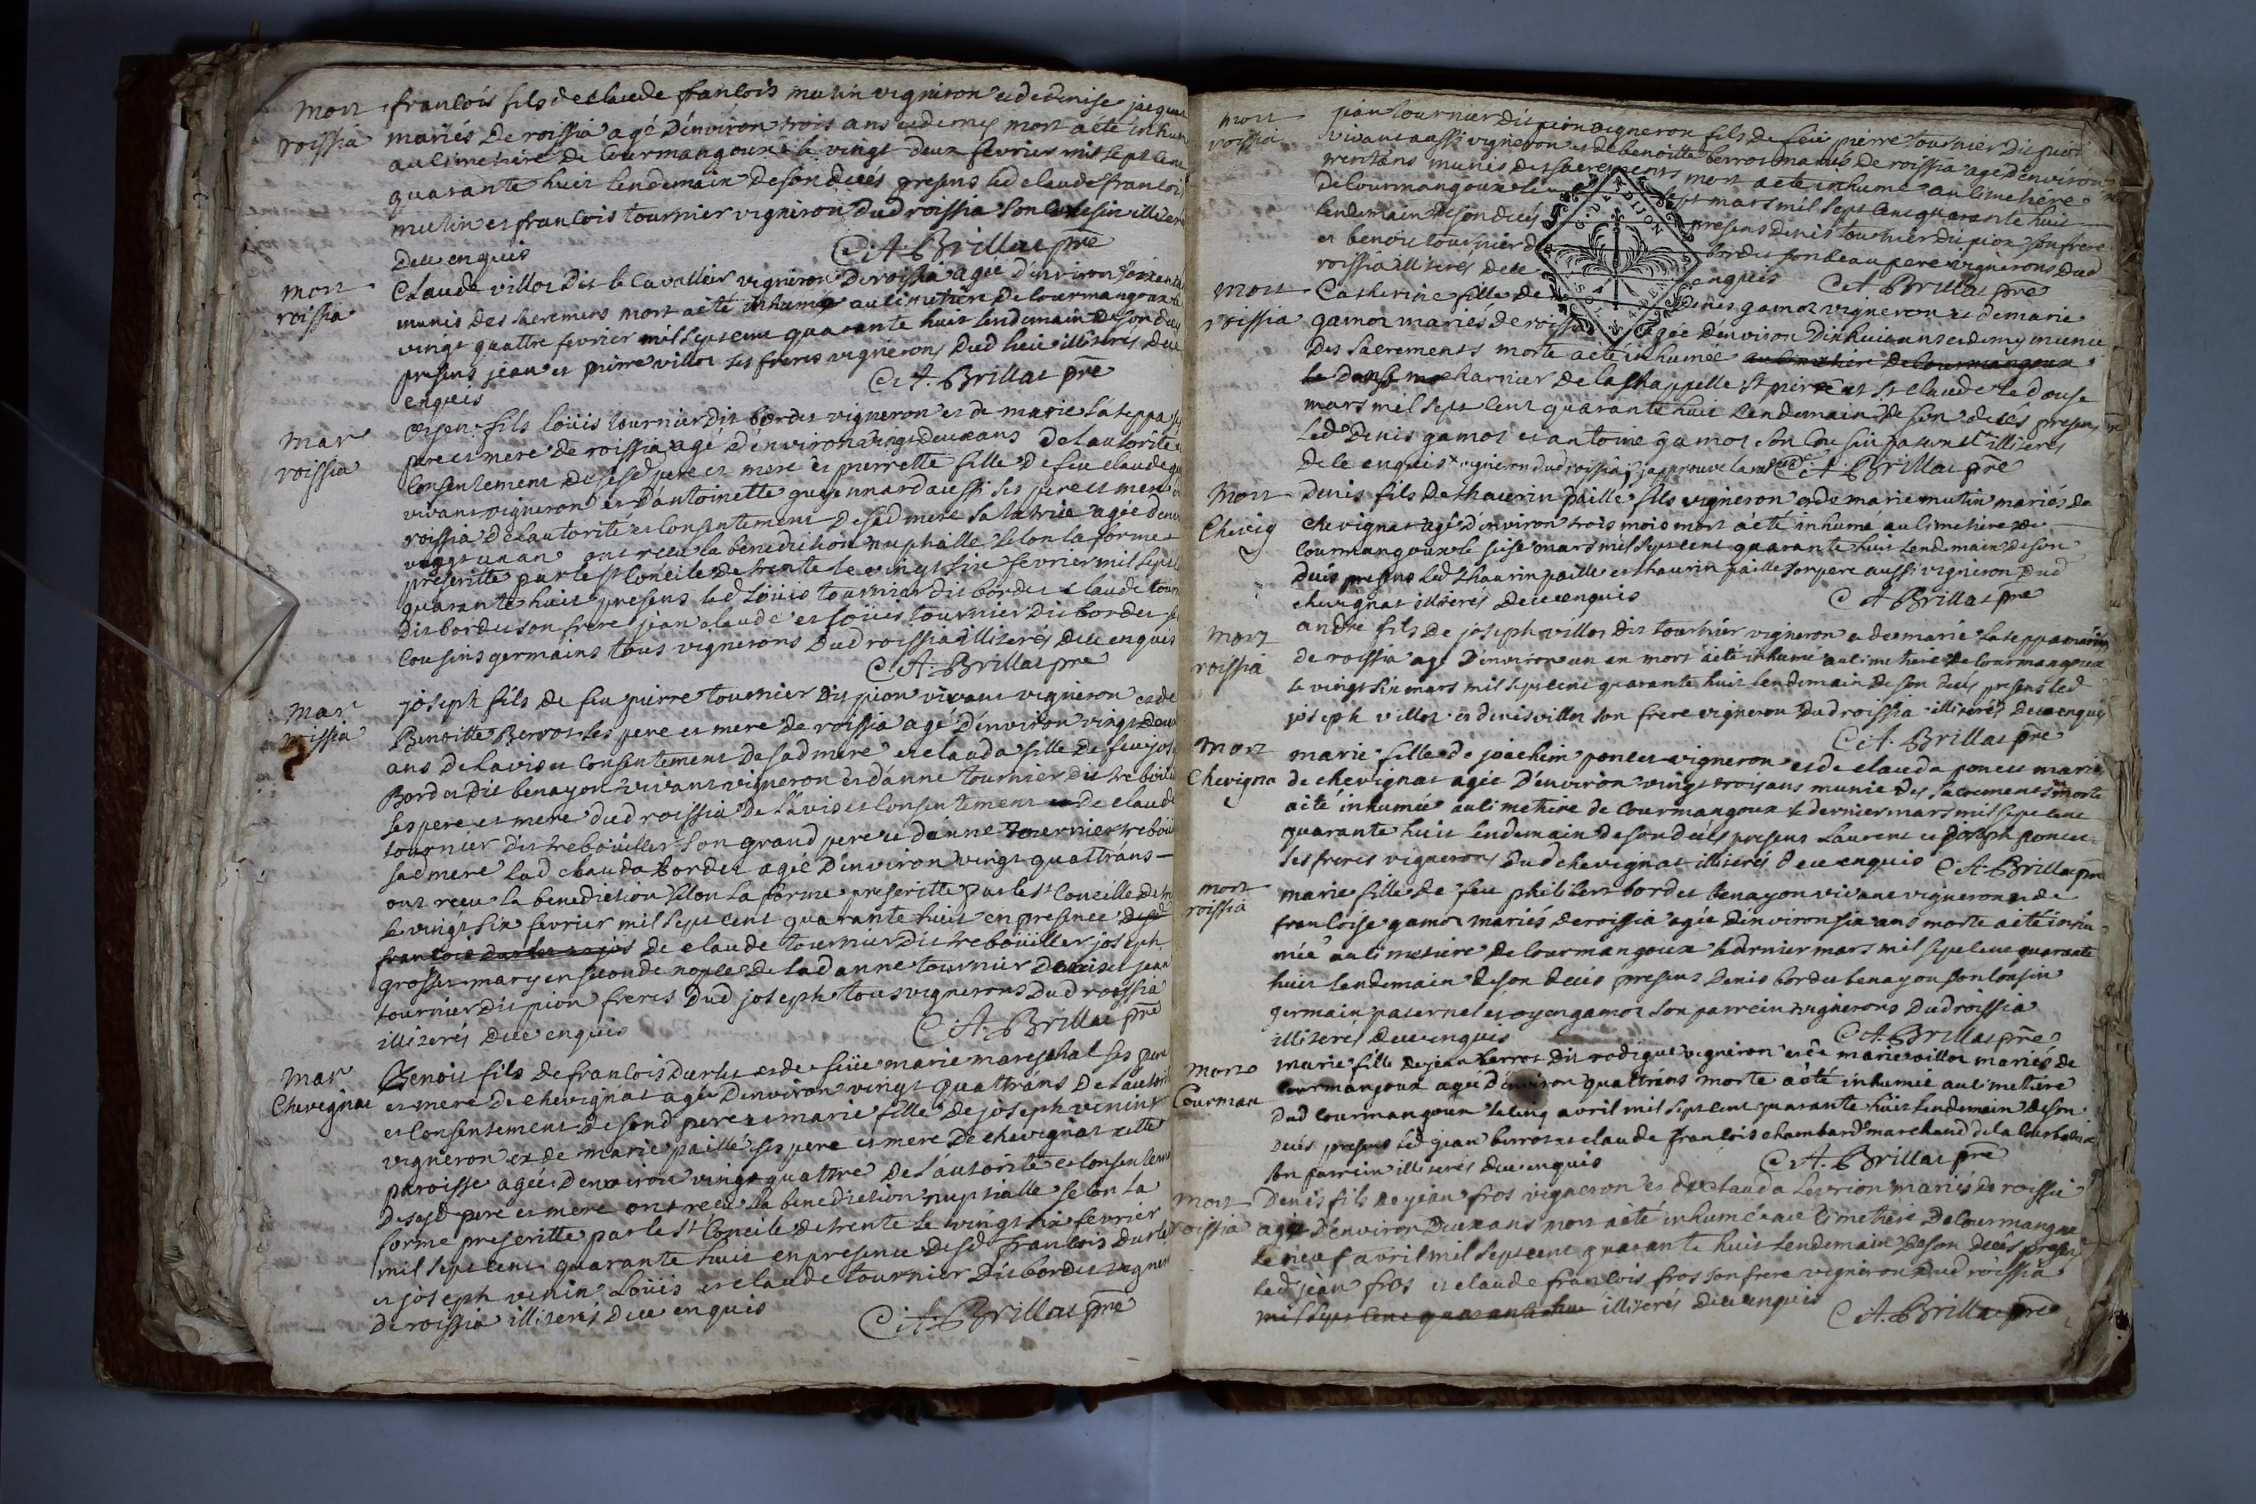 mort
roissia
francois fils de claude francois mutin vigneron et de denise jacque
mariés de roissia agé d'environ trois ans et demy mort a été inhum
au cimetiere de Courmangoux le vingt deux fevrier mil sept cent
quarante huit lendemain de son deces presens led claude francois
mutin et francois tournier vigneron dud roissia son cousin illiteré
deue enquis
C A Brillat pre
mort
roissia
Claude villot dit le Cavallier vigneron de roissia agée d'environ soixante
munis des sacremens mort a été inhumé au cimetiere de Courmangoux le
vingt quattre fevrier mil sept cent quarante huit lendemain de son deces
presens jean et pierre villot ses freres vignerons dud lieu illiterés deue
enquis
C A. Brillat pre
mar
roissia
oyen fils louis tournier dit bordet vigneron et de marie lateppa ses
pere et mere de roissia agé d'environ vingt deux ans de l'autorité et
consentement de sesd pere et mere et pierrette fille de feu claude
vivant vigneron et d'antoinette guyennard aussi ses pere et mere de
roissia de l'autorité et consentement de sad mere agée d'env
vingt un an ont recu la benediction nuptialle selon la forme
prescritte par le st Concile de trente le vingt six fevrier mil sept c
quarante huit presens led louis tournier dit bordet claude tour
dit bordet son frere jean claude et louis tournier dit bordet
cousins germains tous vignerons dud roissia illiterés deue enquis
C. A. Brillat pre
mar
roissia
joseph fils de feu pierre tournier dit pion vivant vigneron et de
Benoitte Berrot ses pere et mere de roissia agé d'environ vingt deux
ans de l'avis et consentement de sad mere et clauda fille de feu jos
Bordet dit benayon vivant vigneron et d'anne tournier dit trebouill
ses pere et mere dud roissia de l'avis et consentement de claude
tournier dit trebouiller son grand pere et d'anne tournier trebouill
sad mere lad clauda bordet agée d'environ vingt quattr'ans
ont recu la benediction selon la forme prescritte par le st Concille de tr
le vingt six fevrier mil sept cent quarante huit en presence desd
de claude tournier dit trebouiller joseph
grosset mary en seconde nopces de lad anne tournier denis et jean
tournier dit pion freres dud joseph tous vignerons dud roissia
illiterés deue enquis
C. A. Brillat pre
mar
Chevignat
Benoit fils de francois durlet et de feüe marie mareschal ses pere
et mere de chevignat agé d'environ vingt quattr'ans de l'autorité
et consentement de sond pere et marie fille de joseph venin
vigneron et de marie paille ses pere et mere de chevignat cette
paroisse agée d'environ vingt quattre de l'autorité et consentem
de sesd pere et mere ont recu la benediction nuptialle selon la
forme prescritte par le st Concile de trente le vingt six fevrier
mil sept cent quarante huit en presence desd francois durlet
et joseph venin louis et claude tournier dit bordet vigneron
de roissia illiterés deue enquis
C. A. Brillat pre
mort
roissia
jean tournier dit pion vigneron fils de feu pierre tournier dit pion
vivant aussi vigneron et de benoitte berrot mariés de roissia agé d'environ
trent'ans munis des sacremens mort a été inhumé au cimetiere
de Courmangoux le sept mars mil sept cent quarante huit
lendemain de son decés presens denis tournier dit pion son frere
et benoit tournier d bordet son beau pere vignerons dud
roissia illiterés deue enquis
C A Brillat pre
G. DE DIJON
mort
roissia
Catherine fille de denis gamot vigneron et de marie
gamot mariés de roissia agée d'environ dix huit ans et demy munie
des sacrements morte a été inhumée au cimetiere de Courmangoux
le dans charnier de la chappelle st pierre et st claude le douse
mars mil sept cent quarante huit lendemain de son decés presens
led denis gamot et antoine gamot son cousin paternel illiterés
de ce enquis vigneron dud roissia j'approuve
C A. Brillat pre
mort
Chevig
denis fils de thaurin paille fils vigneron et de marie mutin mariés de
chevignat agé d'environ trois mois mort a été inhumé au cimetiere de
Courmangoux le seise mars mil sept cent quarante huit lendemain de son
decés presens led thaurin paille et thaurin paille son pere aussi vigneron dud
chevignat illiterés deue enquis
C A Brillat pre
mort
roissia
andré fils de joseph villot dit tournier vigneron et de marie lateppa mariés
de roissia agé d'environ un an mort a été inhumé au cimetiere de Courmangoux
le vingt six mars mil sept cent quarante huit lendemain de son deces presens led
joseph villot et denis villot son frere vigneron dud roissia illiterés deue enquis
C. A. Brillat pre
mort
Chevigna
marie fille de joachim poncet vigneron et de clauda poncet mariés
de chevignat agée d'environ vingt trois ans munie des sacrements morte
a été inhumée au cimetiere de Courmangoux le dernier mars mil sept cent
quarante huit lendemain de son deces presens Laurent et joseph poncet
ses freres vignerons dud chevignat illiterés deue enquis
C A. Brillat pre
mort
roissia
marie fille de feu philibert bordet benayon vivant vigneron et de
francoise gamot mariés de roissia agée d'environ six ans morte a été inhu
mée au cimetiere de Courmangoux le dernier mars mil sept cent quarante
huit lendemain de son decés presens denis bordet benayon son cousin
germain paternel et oyen gamot son parrein vignerons dud roissia
illiterés deue enquis
C. A. Brillat pre
morte
Courman
marie fille de jean berrot dit rodigue vigneron et de marie villot mariés de
Courmangoux agée d'environ quattr'ans morte a été inhumée au cimetiere
dud Courmangoux le cinq avril mil sept cent quarante huit lendemain de son
decés presens led jean berrot et claude francois chambard marchand de la Courbatiere
son parrein illiterés deue enquis
C. A. Brillat pre
mort
roissia
Denis fils de jean fros vigneron et de clauda levrion mariés de roissia
agé d'environ deux ans mort a été inhumé au cimetiere de Courmangoux
le neuf avril mil sept cent quarante huit lendemain de son decés presens
led jean fros et claude francois fros son frere vigneron dud roissia
mil sept cent quarante huit illiterés deue enquis
C. A. Brillat pre